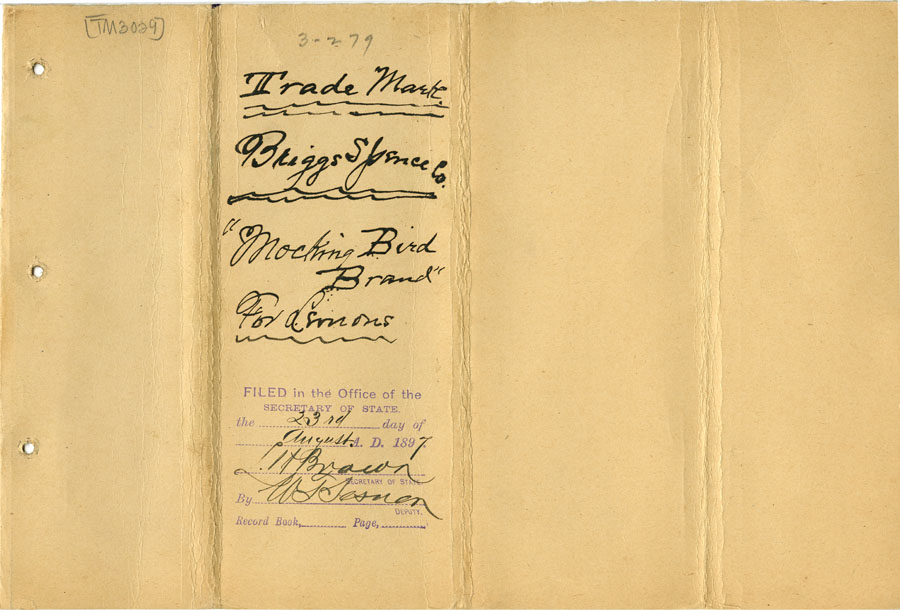 [TM3029]
3-2 79
Trade Mark.
Briggs Spence Co.
"Mocking Bird
Brand"
For Lemons
FILED in the Office of the
SECRETARY OF STATE.
the 23rd day of
August A. D. 1897.
Brown
SECRETARY OF STATE
By
DEPUTY.
Record Book, Page,